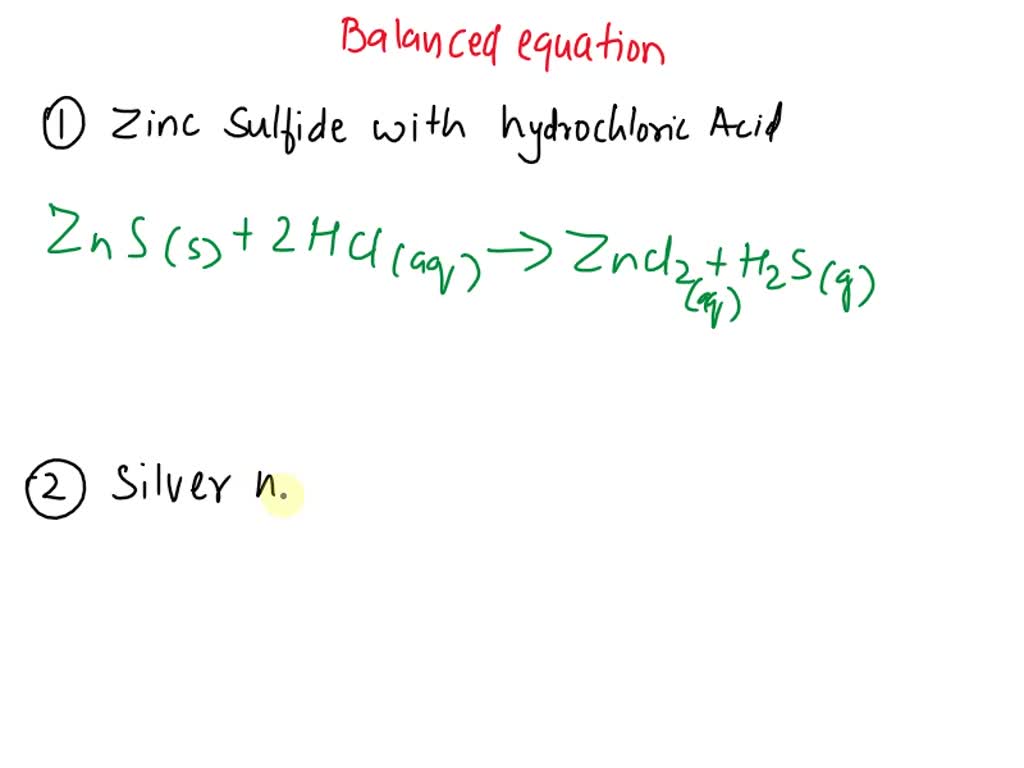 Balanced equation
① Zinc Sulfide with hydrochloric Acid
ZnS(s) + 2HCl(aq) → ZnCl2(aq) + H2S(g)
② Silver n.